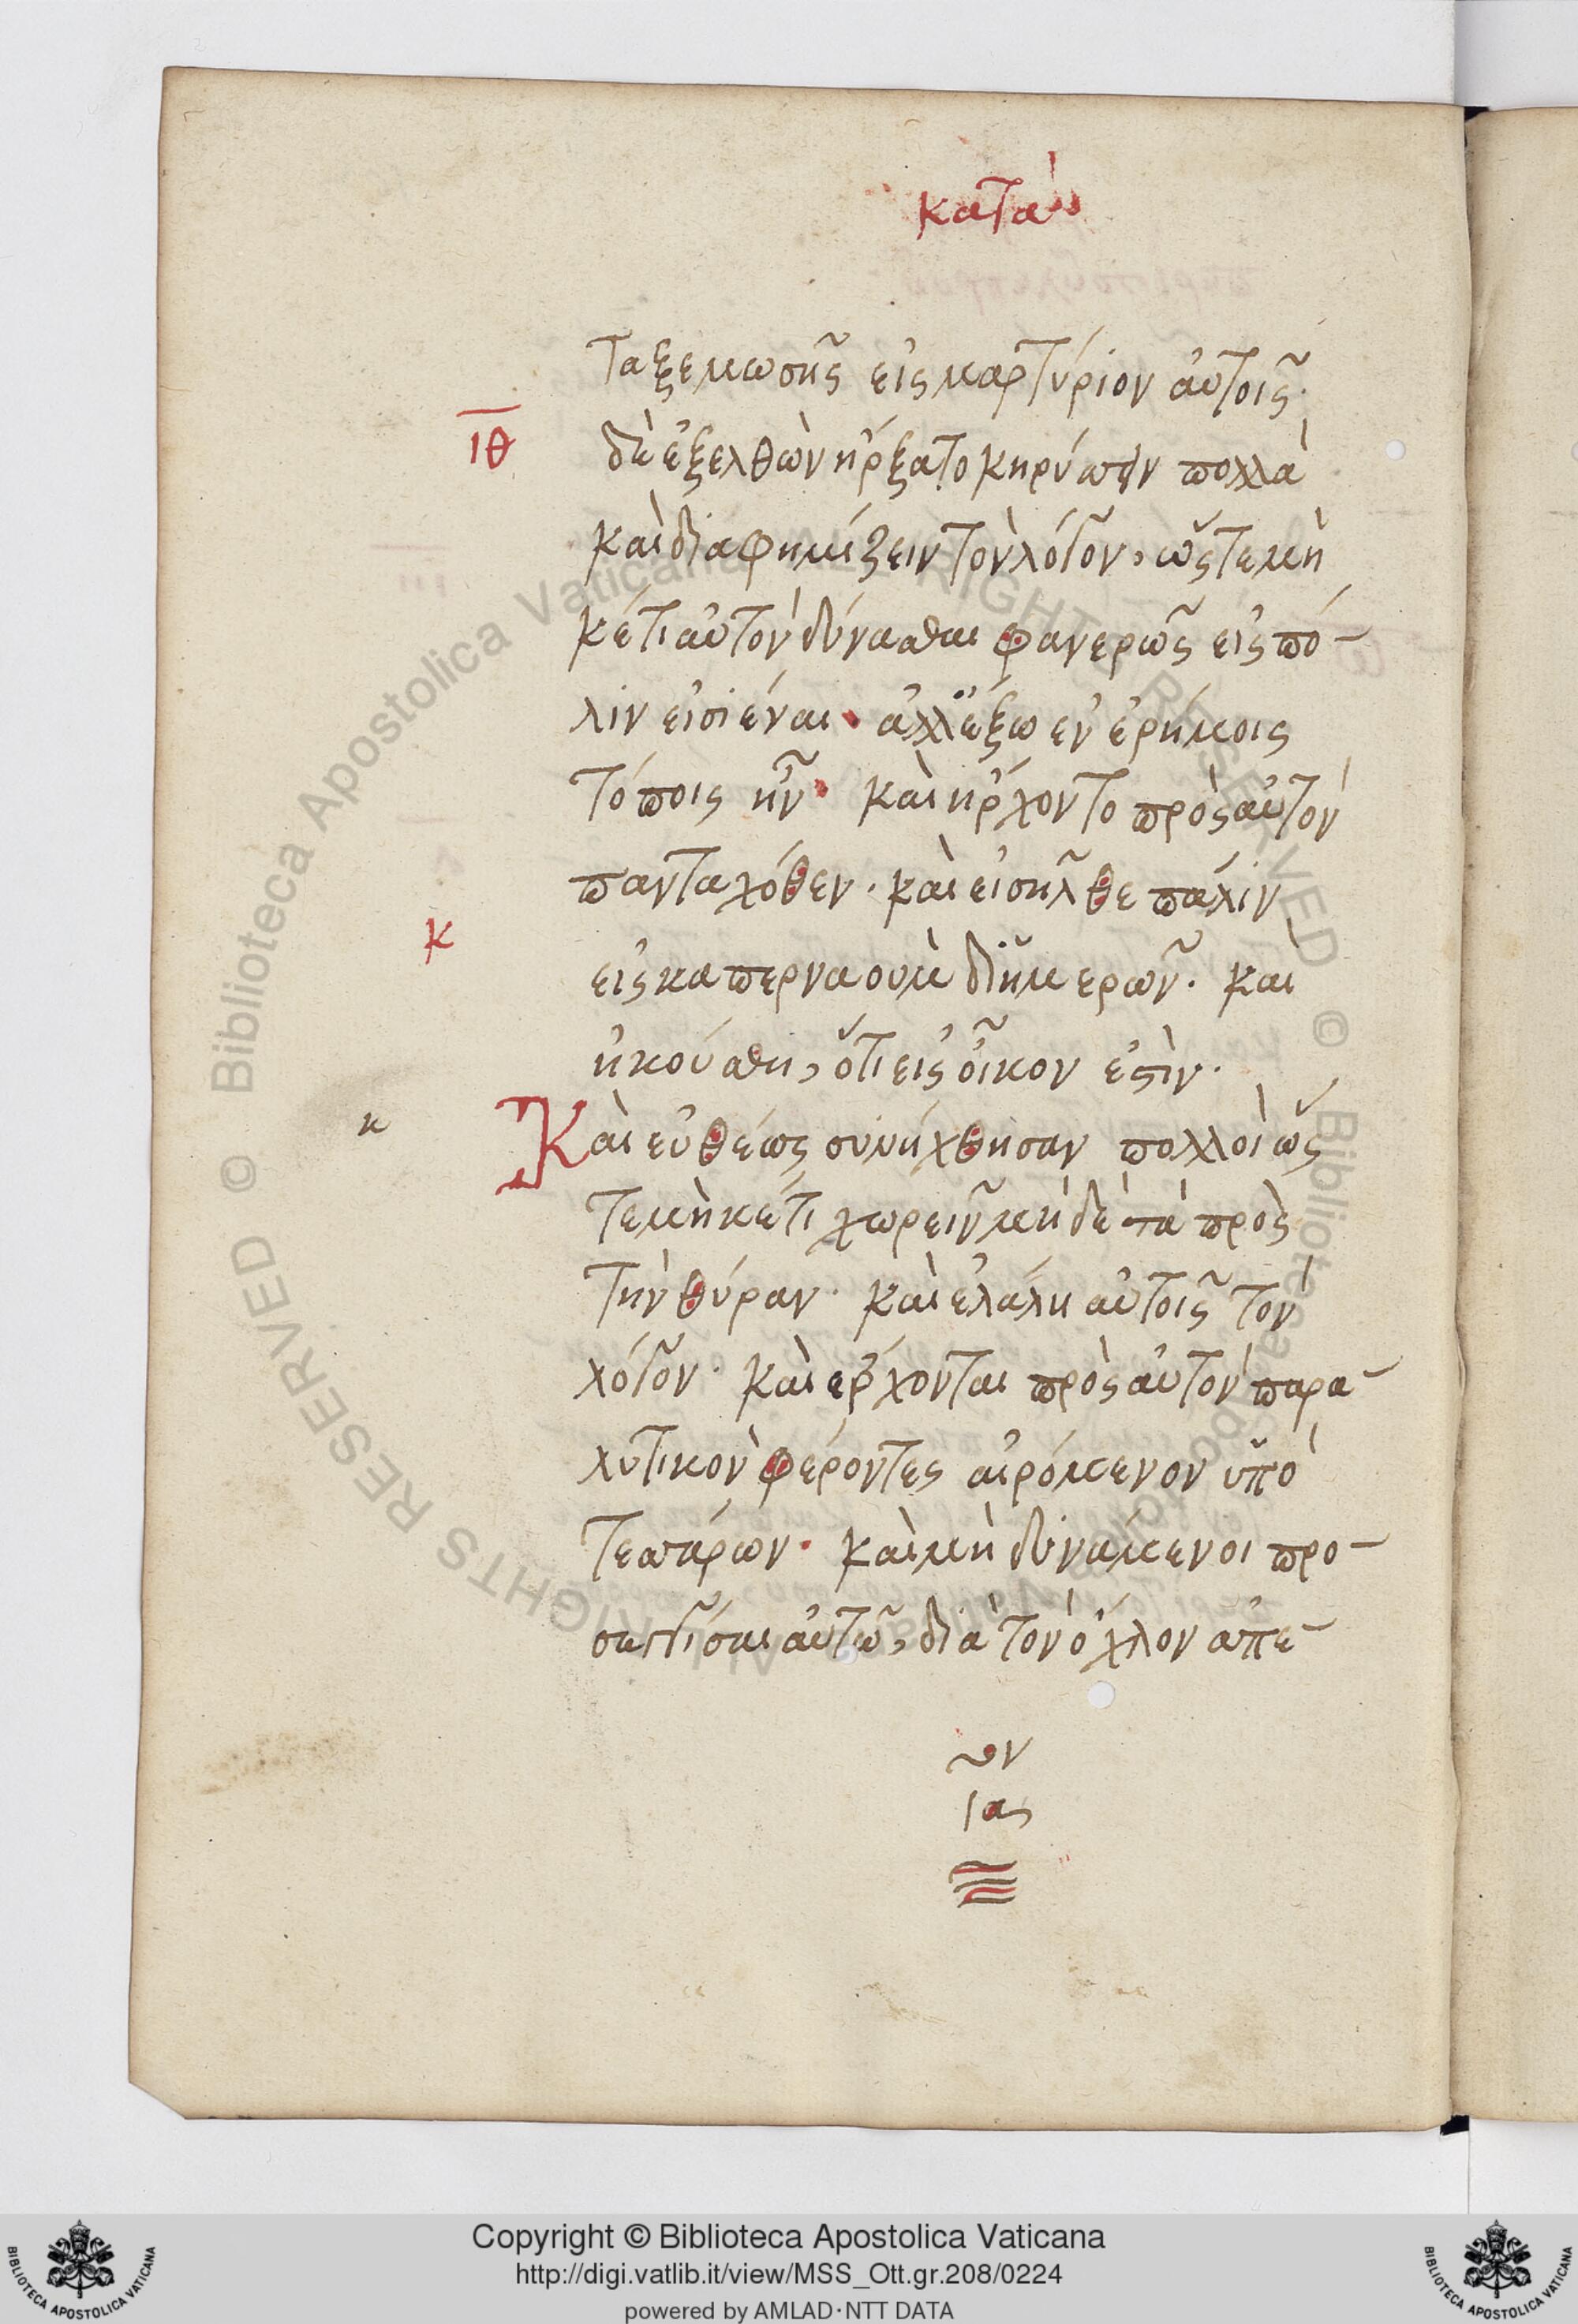 κατὰ
ταξε μωσῆς εἰς μαρτύριον αὐτοῖς·
ιθ
δὲ ἐξελθὼν ἤρξατο κηρύσσειν πολλὰ
καὶ διαφημίζειν τὸν λόγον, ὥστε μη
κέτι αὐτὸν δύνασθαι φανερῶς εἰς πό-
λιν εἰσιέναι· ἀλλ' ἔξω ἐν ἐρήμοις
τόποις ἦν· καὶ ἤρχοντο πρὸς αὐτὸν
πανταχόθεν· καὶ εἰσῆλθε πάλιν
κ
εἰς καπερναοὺμ δι' ἡμερῶν· καὶ
ἠκούσθη, ὅτι εἰς οἶκον ἐστὶν·
κ
Καὶ εὐθέως συνήχθησαν πολλοὶ ὥσ
τε μὴκέτι χωρεῖν μὴδὲ τὰ πρὸς
τὴν θύραν· καὶ ἐλάλη αὐτοῖς τὸν
λόγον· καὶ ἔρχονται πρὸς αὐτὸν παρα-
λυτικὸν φέροντες αἰρόμενον ὑπὸ
τεσσάρων· καὶ μὴ δυνάμενοι προ-
σεγγίσαι αὐτῷ, διὰ τὸν ὄχλον ἀπε-
Copyright © Biblioteca Apostolica Vaticana
http://digi.vatlib.it/view/MSS_Ott.gr.208/0224
powered by AMLAD·NTT DATA